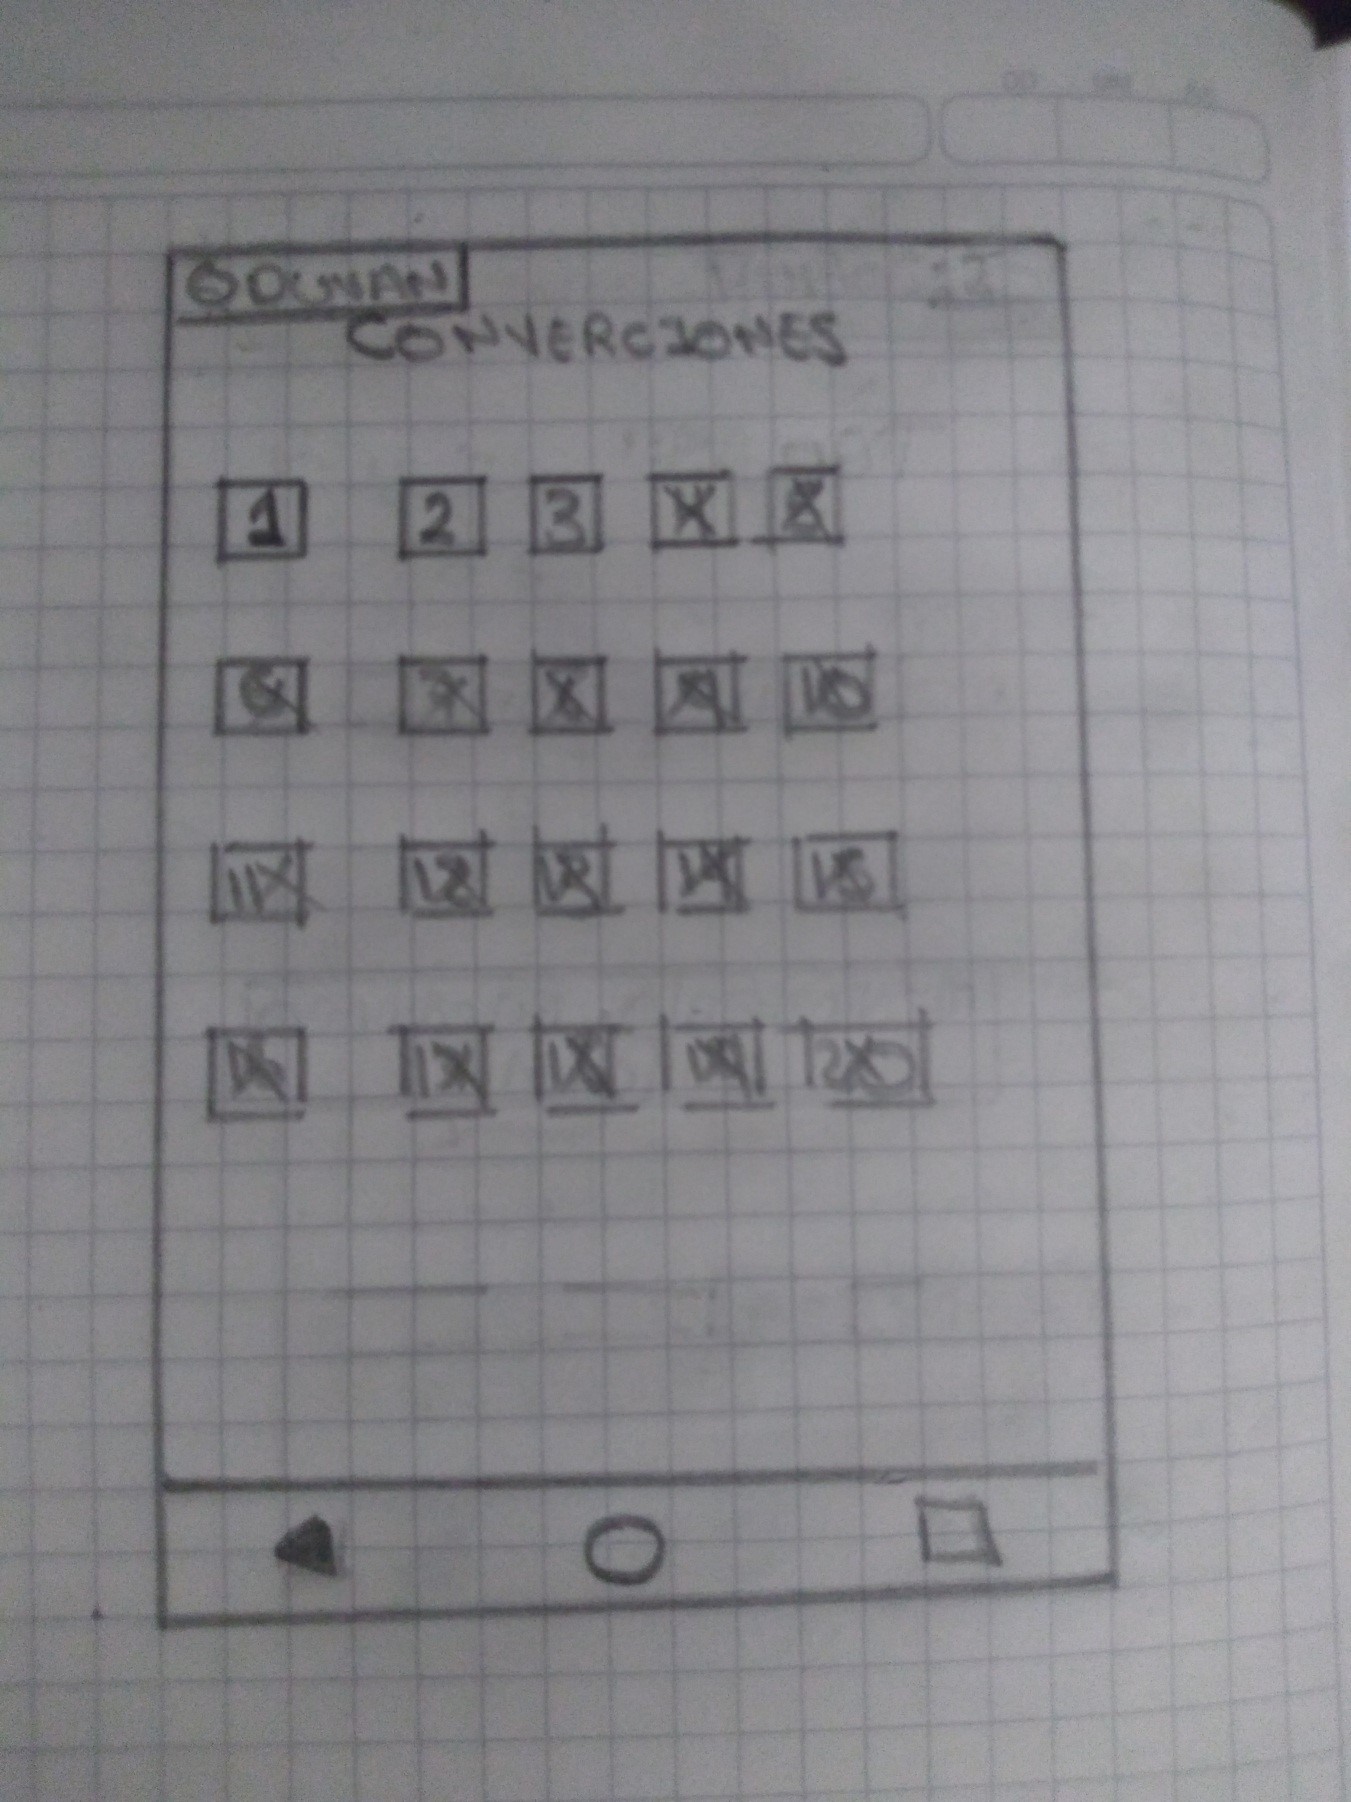 CONVERCIONES
1 2 3 4 5
6 7 8 9 10
11 12 13 14 15
16 17 18 19 20